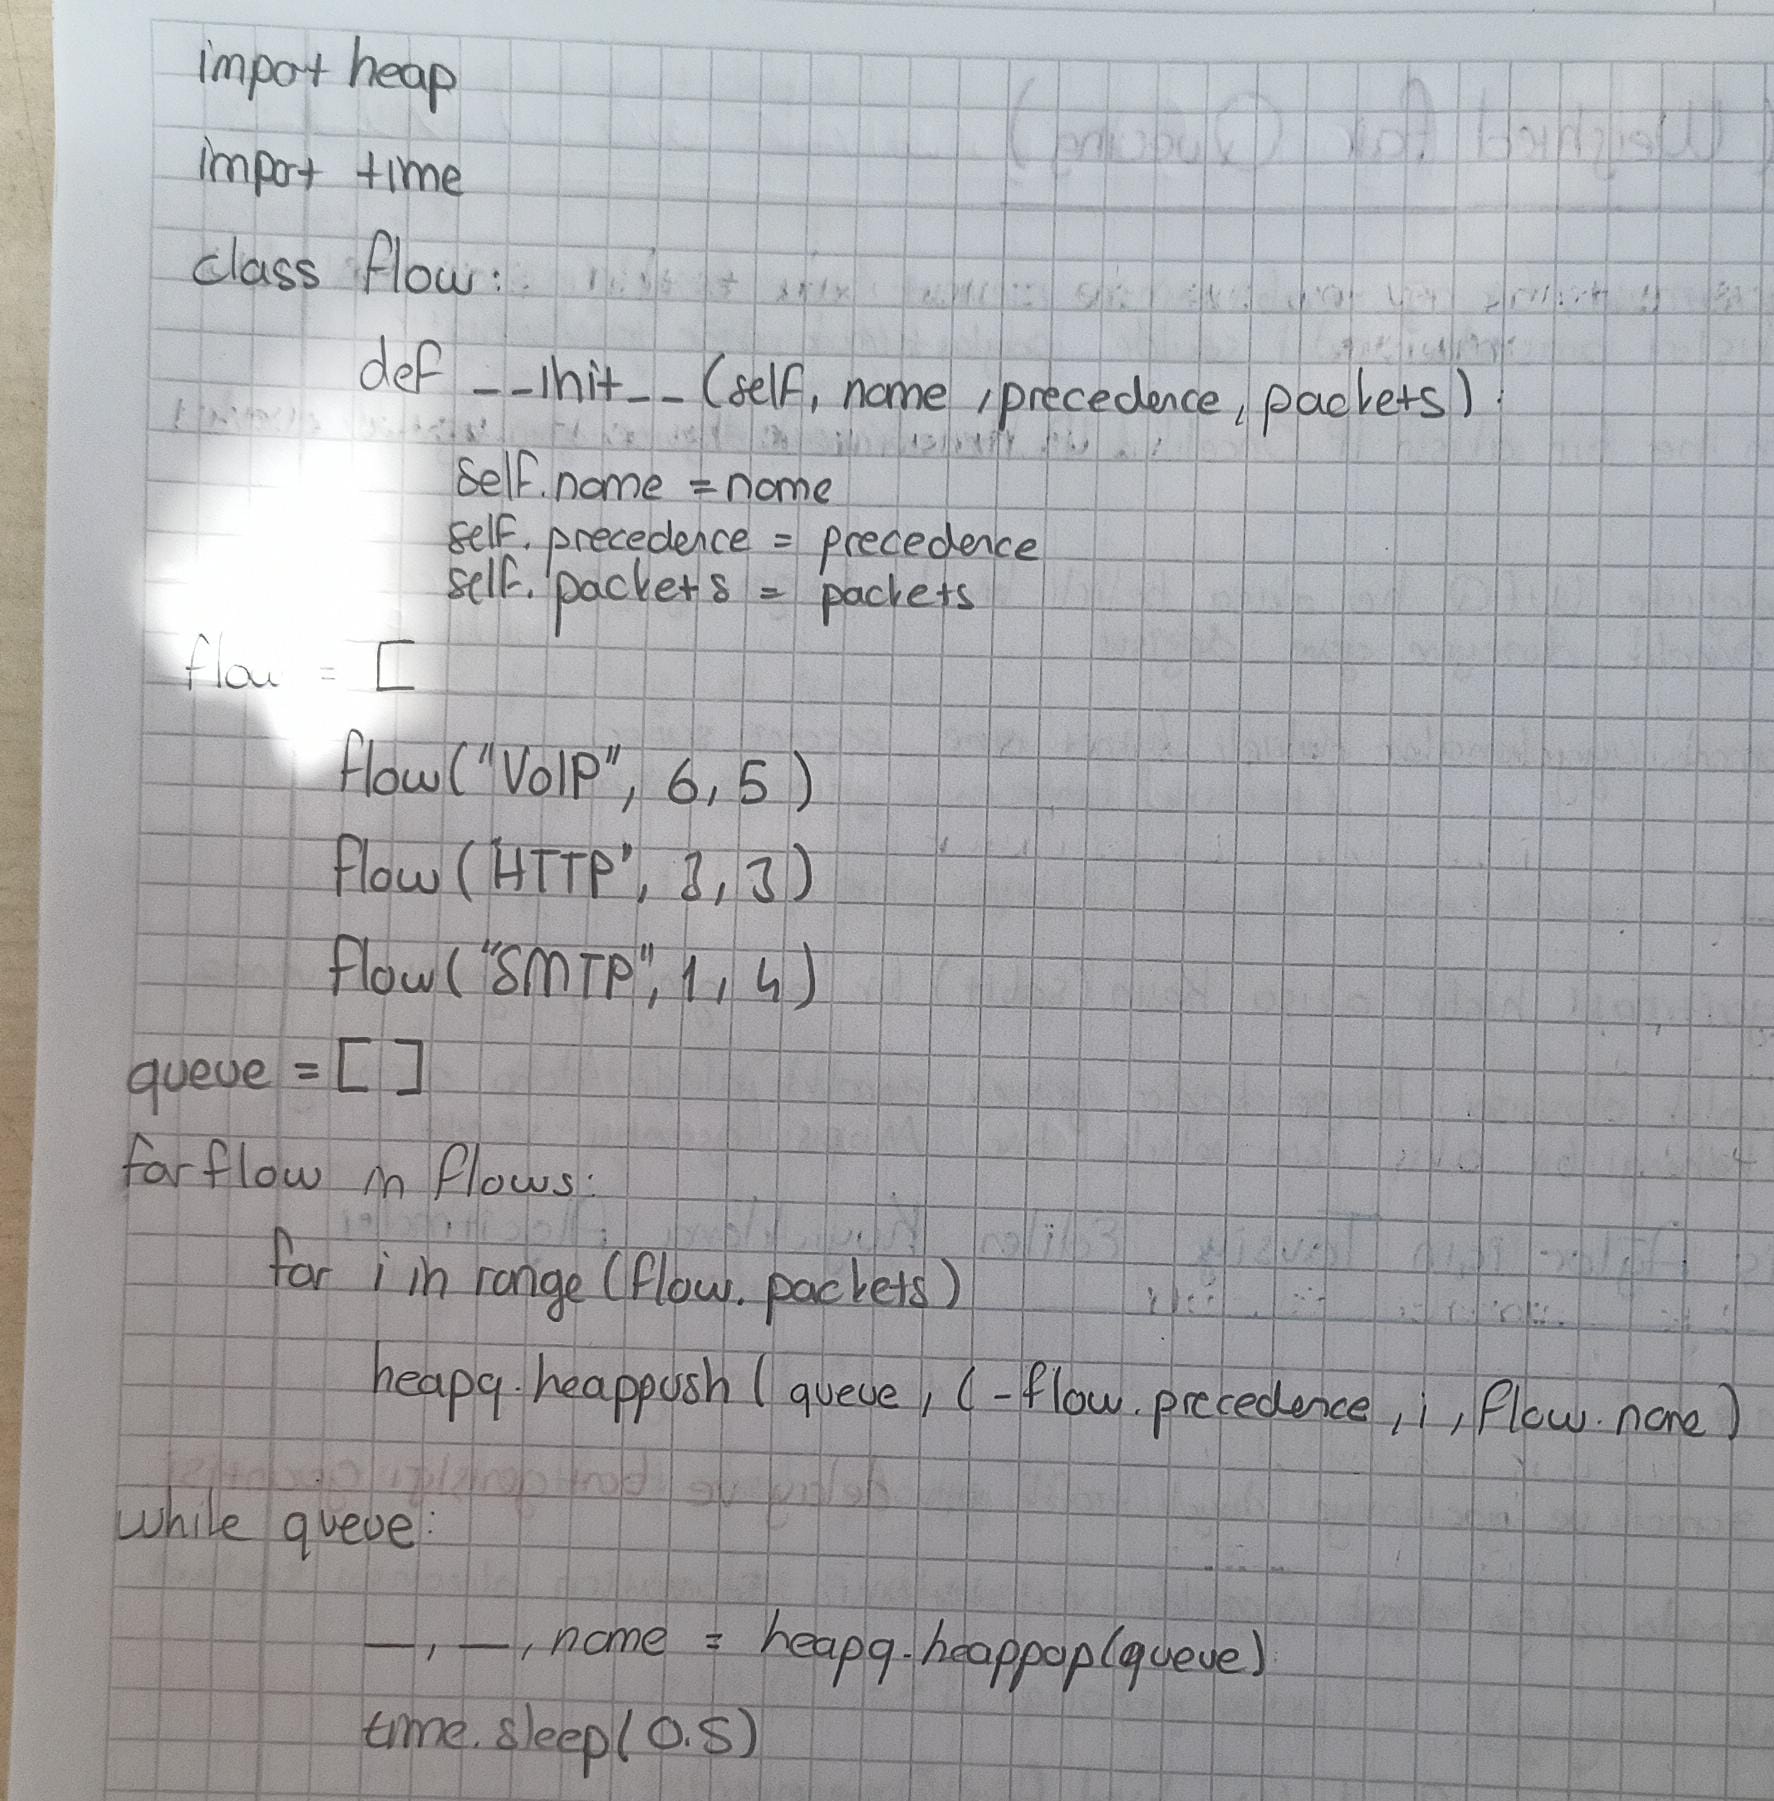 import heap
import time
class flow:
def __init__(self, name, precedence, packets):
self.name = name
self.precedence = precedence
self.packets = packets
flow = [
flow("VoIP", 6, 5)
flow("HTTP", 3, 3)
flow("SMTP", 1, 4)
queue = [ ]
for flow in flows:
for i in range(flow.packets)
heapq.heappush(queue, (-flow.precedence, i, flow.name)
while queue:
_, _, name = heapq.heappop(queue)
time.sleep(0.5)